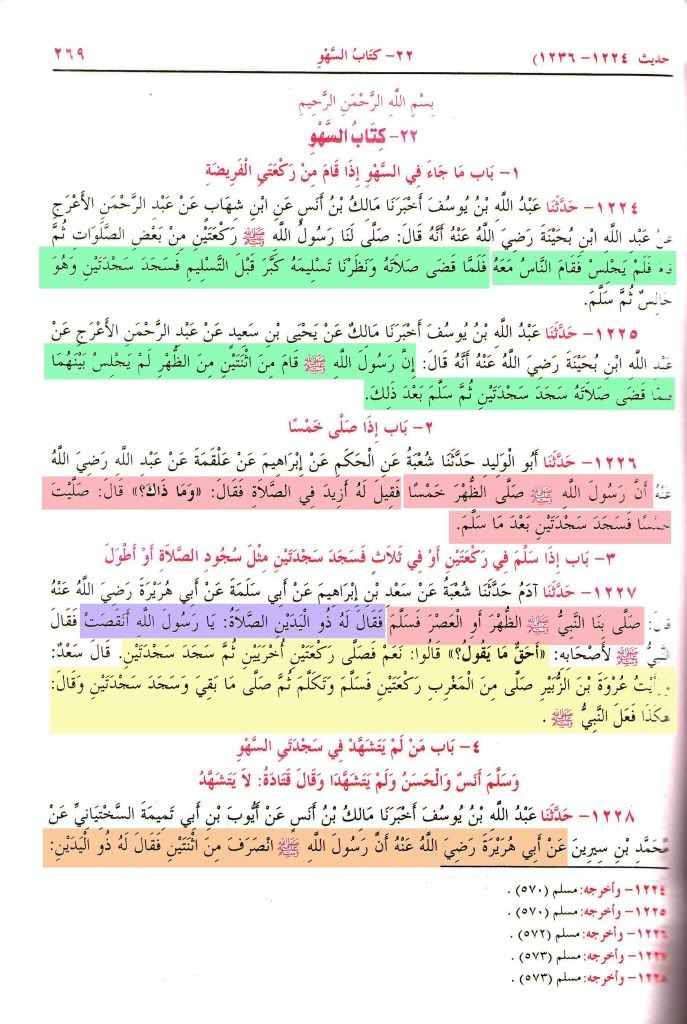 حديث ١٢٢٤- ١٢٣٦) ٢٢- كتابُ السَّهْوِ ٢٦٩
بِسْمِ اللَّهِ الرَّحْمَنِ الرَّحِيمِ
٢٢- كِتَابُ السَّهْوِ
١- بَاب مَا جَاءَ فِي السَّهْوِ إِذَا قَامَ مِنْ رَكْعَتَيِ الْفَرِيضَةِ
١٢٢٤- حَدَّثَنَا عَبْدُ اللَّهِ بْنُ يُوسُفَ أَخْبَرَنَا مَالِكُ بْنُ أَنَسٍ عَنِ ابْنِ شِهَابٍ عَنْ عَبْدِ الرَّحْمَنِ الأَعْرَجِ
عَنْ عَبْدِ اللَّهِ ابْنِ بُحَيْنَةَ رَضِيَ اللَّهُ عَنْهُ أَنَّهُ قَالَ: صَلَّى لَنَا رَسُولُ اللَّهِ ﷺ رَكْعَتَيْنِ مِنْ بَعْضِ الصَّلَوَاتِ ثُمَّ
قَامَ فَلَمْ يَجْلِسْ فَقَامَ النَّاسُ مَعَهُ فَلَمَّا قَضَى صَلاَتَهُ وَنَظَرْنَا تَسْلِيمَهُ كَبَّرَ قَبْلَ التَّسْلِيمِ فَسَجَدَ سَجْدَتَيْنِ وَهُوَ
جَالِسٌ ثُمَّ سَلَّمَ.
١٢٢٥- حَدَّثَنَا عَبْدُ اللَّهِ بْنُ يُوسُفَ أَخْبَرَنَا مَالِكٌ عَنْ يَحْيَى بْنِ سَعِيدٍ عَنْ عَبْدِ الرَّحْمَنِ الأَعْرَجِ عَنْ
عَبْدِ اللَّهِ ابْنِ بُحَيْنَةَ رَضِيَ اللَّهُ عَنْهُ أَنَّهُ قَالَ: إِنَّ رَسُولَ اللَّهِ ﷺ قَامَ مِنَ اثْنَتَيْنِ مِنَ الظُّهْرِ لَمْ يَجْلِسْ بَيْنَهُمَا
فَلَمَّا قَضَى صَلاَتَهُ سَجَدَ سَجْدَتَيْنِ ثُمَّ سَلَّمَ بَعْدَ ذَلِكَ.
٢- بَاب إِذَا صَلَّى خَمْسًا
١٢٢٦- حَدَّثَنَا أَبُو الْوَلِيدِ حَدَّثَنَا شُعْبَةُ عَنِ الْحَكَمِ عَنْ إِبْرَاهِيمَ عَنْ عَلْقَمَةَ عَنْ عَبْدِ اللَّهِ رَضِيَ اللَّهُ
عَنْهُ أَنَّ رَسُولَ اللَّهِ ﷺ صَلَّى الظُّهْرَ خَمْسًا فَقِيلَ لَهُ أَزِيدَ فِي الصَّلاَةِ فَقَالَ: «وَمَا ذَاكَ؟» قَالَ: صَلَّيْتَ
خَمْسًا فَسَجَدَ سَجْدَتَيْنِ بَعْدَ مَا سَلَّمَ.
٣- بَاب إِذَا سَلَّمَ فِي رَكْعَتَيْنِ أَوْ فِي ثَلاَثٍ فَسَجَدَ سَجْدَتَيْنِ مِثْلَ سُجُودِ الصَّلاَةِ أَوْ أَطْوَلَ
١٢٢٧- حَدَّثَنَا آدَمُ حَدَّثَنَا شُعْبَةُ عَنْ سَعْدِ بْنِ إِبْرَاهِيمَ عَنْ أَبِي سَلَمَةَ عَنْ أَبِي هُرَيْرَةَ رَضِيَ اللَّهُ عَنْهُ
قَالَ: صَلَّى بِنَا النَّبِيُّ ﷺ الظُّهْرَ أَوِ الْعَصْرَ فَسَلَّمَ فَقَالَ لَهُ ذُو الْيَدَيْنِ الصَّلاَةُ: يَا رَسُولَ اللَّهِ أَنَقَصَتْ فَقَالَ
النَّبِيُّ ﷺ لأَصْحَابِهِ: «أَحَقٌّ مَا يَقُولُ؟» قَالُوا: نَعَمْ فَصَلَّى رَكْعَتَيْنِ أُخْرَيَيْنِ ثُمَّ سَجَدَ سَجْدَتَيْنِ. قَالَ سَعْدٌ:
وَرَأَيْتُ عُرْوَةَ بْنَ الزُّبَيْرِ صَلَّى مِنَ الْمَغْرِبِ رَكْعَتَيْنِ فَسَلَّمَ وَتَكَلَّمَ ثُمَّ صَلَّى مَا بَقِيَ وَسَجَدَ سَجْدَتَيْنِ وَقَالَ:
هَكَذَا فَعَلَ النَّبِيُّ ﷺ .
٤- بَاب مَنْ لَمْ يَتَشَهَّدْ فِي سَجْدَتَيِ السَّهْوِ
وَسَلَّمَ أَنَسٌ وَالْحَسَنُ وَلَمْ يَتَشَهَّدَا وَقَالَ قَتَادَةُ: لاَ يَتَشَهَّدُ
١٢٢٨- حَدَّثَنَا عَبْدُ اللَّهِ بْنُ يُوسُفَ أَخْبَرَنَا مَالِكُ بْنُ أَنَسٍ عَنْ أَيُّوبَ بْنِ أَبِي تَمِيمَةَ السَّخْتِيَانِيِّ عَنْ
مُحَمَّدِ بْنِ سِيرِينَ عَنْ أَبِي هُرَيْرَةَ رَضِيَ اللَّهُ عَنْهُ أَنَّ رَسُولَ اللَّهِ ﷺ انْصَرَفَ مِنَ اثْنَتَيْنِ فَقَالَ لَهُ ذُو الْيَدَيْنِ:
١٢٢٤- وأخرجه: مسلم (٥٧٠) .
١٢٢٥- وأخرجه: مسلم (٥٧٠) .
١٢٢٦- وأخرجه: مسلم (٥٧٢) .
١٢٢٧- وأخرجه: مسلم (٥٧٣) .
١٢٢٨- وأخرجه: مسلم (٥٧٣) .